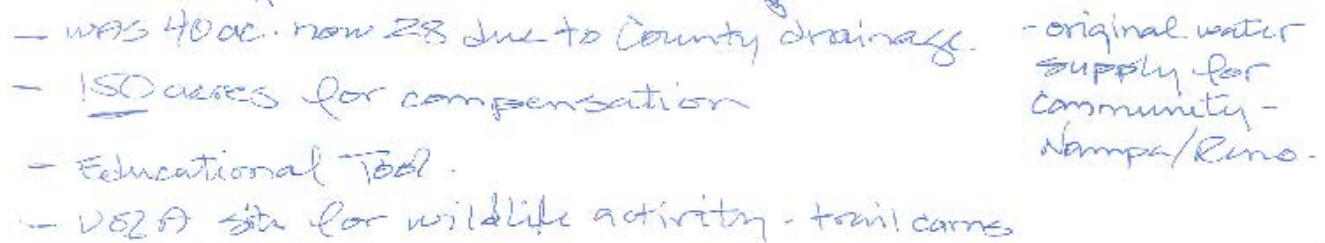 - WAS 40 ac. now 28 due to County drainage.
- 150 acres for compensation
- Educational Tool.
- site for wildlife activity - trail cams
- original water
supply for
Community -
Nampa/Reno.